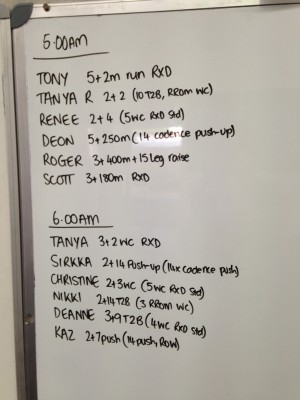 5.00AM
TONY 5+2m run RXD
TANYA R 2+2 (10T2B, RROM WC)
RENEE 2+4 (5WC RXD Std)
DEON 5+250m (14 cadence push-up)
ROGER 3+400m+15 Leg raise
SCOTT 3+180m RXD
6.00AM
TANYA 3+2WC RXD
SIRKKA 2+14 Push-up (14x cadence push)
CHRISTINE 2+3WC (5WC RXD Std)
NIKKI 2+14T2B (3 RROM WC)
DEANNE 3+9T2B (4WC RXD Std)
KAZ 2+7push (14push, ROW)